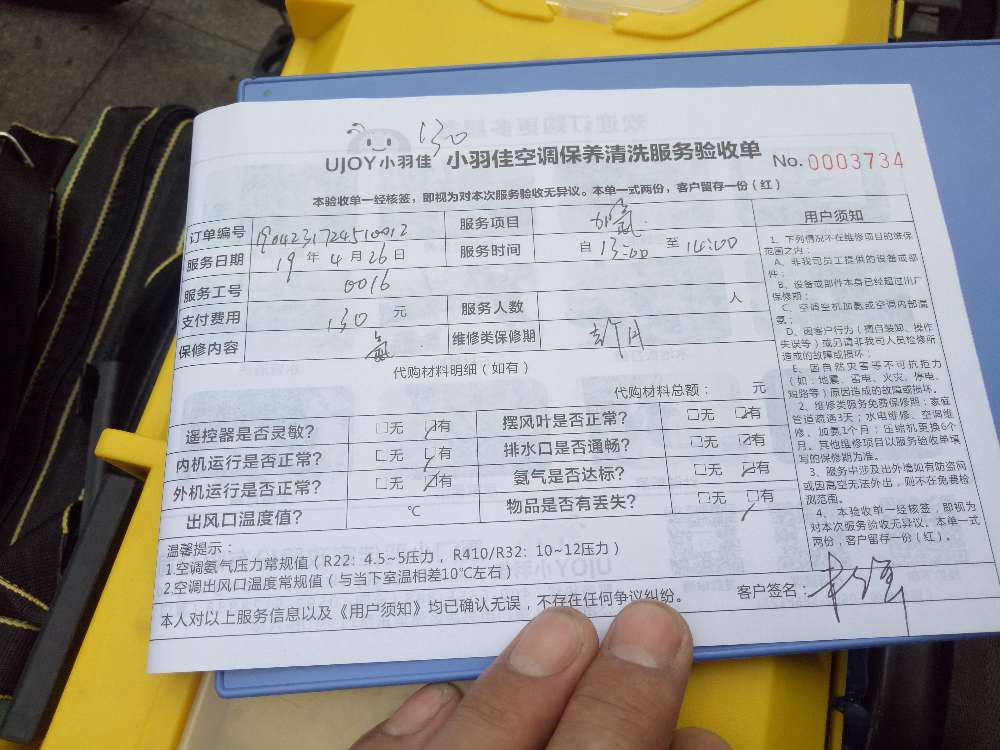 130
UJOY小羽佳 小羽佳空调保养清洗服务验收单 No. 0003734
本验收单一经核签，即视为对本次服务验收无异议。本单一式两份，客户留存一份（红）
订单编号 1904231724510012 服务项目 加氟
服务日期 19年4月26日 服务时间 自13:00至14:00
服务工号 0016
支付费用 130元 服务人数 人
保修内容 氟 维修类保修期
代购材料明细（如有）
代购材料总额： 元
遥控器是否灵敏？ □无 ☑有 摆风叶是否正常？ □无 ☑有
内机运行是否正常？ □无 ☑有 排水口是否通畅？ □无 ☑有
外机运行是否正常？ □无 ☑有 氨气是否达标？ □无 ☑有
出风口温度值？ ℃ 物品是否有丢失？ □无 ☑有
温馨提示：
1.空调氨气压力常规值（R22：4.5~5压力，R410/R32：10~12压力）
2.空调出风口温度常规值（与当下室温相差10℃左右）
本人对以上服务信息以及《用户须知》均已确认无误，不存在任何争议纠纷。
客户签名：
用户须知
1、下列情况不在维修项目的维保
范围之内：
A、非我司员工提供的设备或部
件；
B、设备或部件本身已经超过出厂
保修期；
C、空调空机加氨或空调内部漏
氨；
D、因客户行为（擅自装卸、操作
失误等）或另请非我司人员检修所
造成的故障或损坏；
E、因自然灾害等不可抗拒力
（如：地震、雷电、火灾、停电、
短路等）原因造成的故障或损坏。
2、维修类服务免费保修期：家庭
管道疏通3天；水电维修、空调维
修、加氨1个月；压缩机更换6个
月。其他维修项目以服务验收单填
写的保修期为准。
3、服务中涉及出外墙如有防盗网
或因高空无法外出，则不在免费检
测范围。
4、本验收单一经核签，即视为
对本次服务验收无异议。本单一式
两份，客户留存一份（红）。